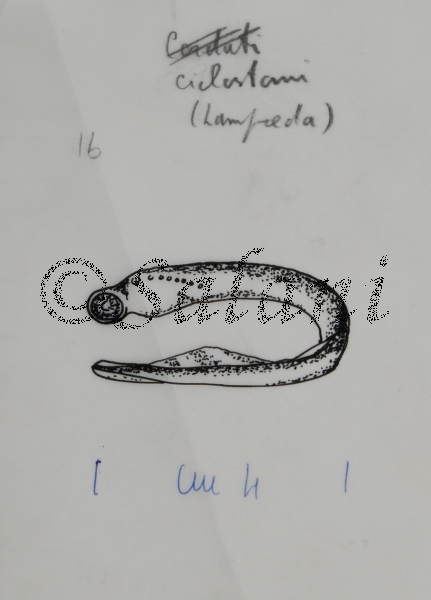 Cordati
ciclostomi
(Lampreda)
16
©Salani
cm 4